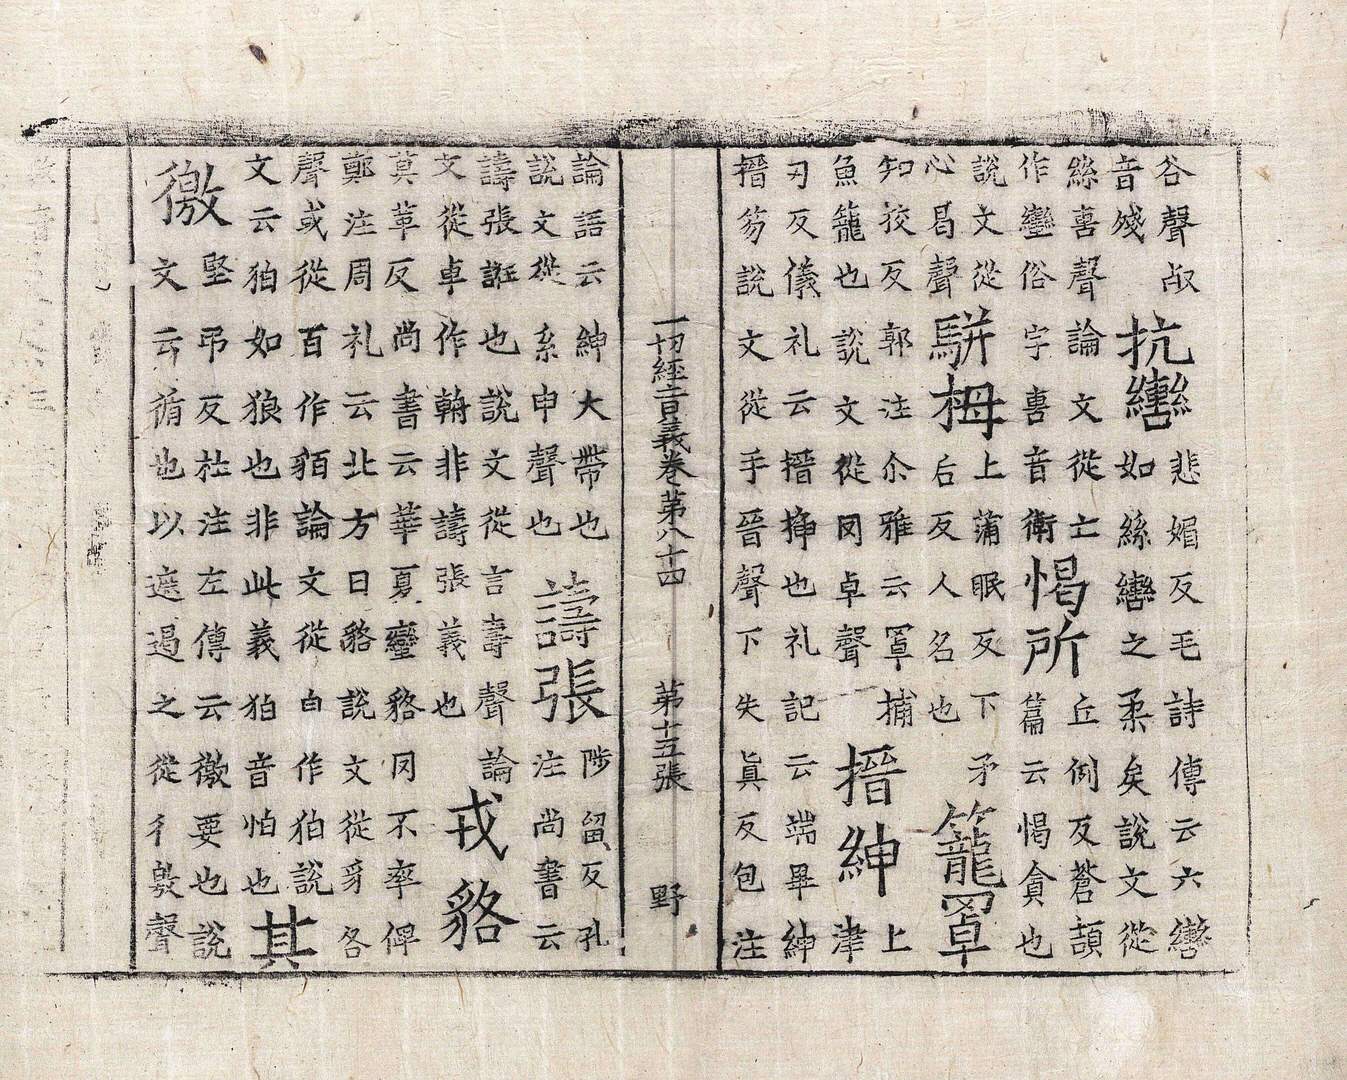 谷聲㕡
音殘
抗轡
悲媚反毛詩傳云六轡
如絲轡之柔矣說文從
絲軎聲論文從亡
作轡俗字軎音衛
愒所
丘例反蒼頡
篇云愒貪也
說文從
心曷聲
駢拇
上蒲眠反下矛
后反人名也
籠罩
知挍反郭注尒雅云罩捕
魚籠也說文從罔卓聲
搢紳
上
津
刃反儀礼云搢揷也礼記云端畢紳
搢笏說文從手晉聲下失真反包注
一切經音義卷第八十四 第十五張 野
論語云紳大帶也
說文從糸申聲也
譸張
陟留反孔
注尚書云
譸張誑也說文從言壽聲論
文從卓作輈非譸張義也
戎貉
莫革反尚書云華夏蠻貉罔不率俾
鄭注周礼云北方曰貉說文從豸各
聲或從百作貊論文從白作狛說
文云狛如狼也非此義狛音怕也
其
徼
堅吊反杜注左傳云徼要也說
文云循也以遮遏之從彳敫聲